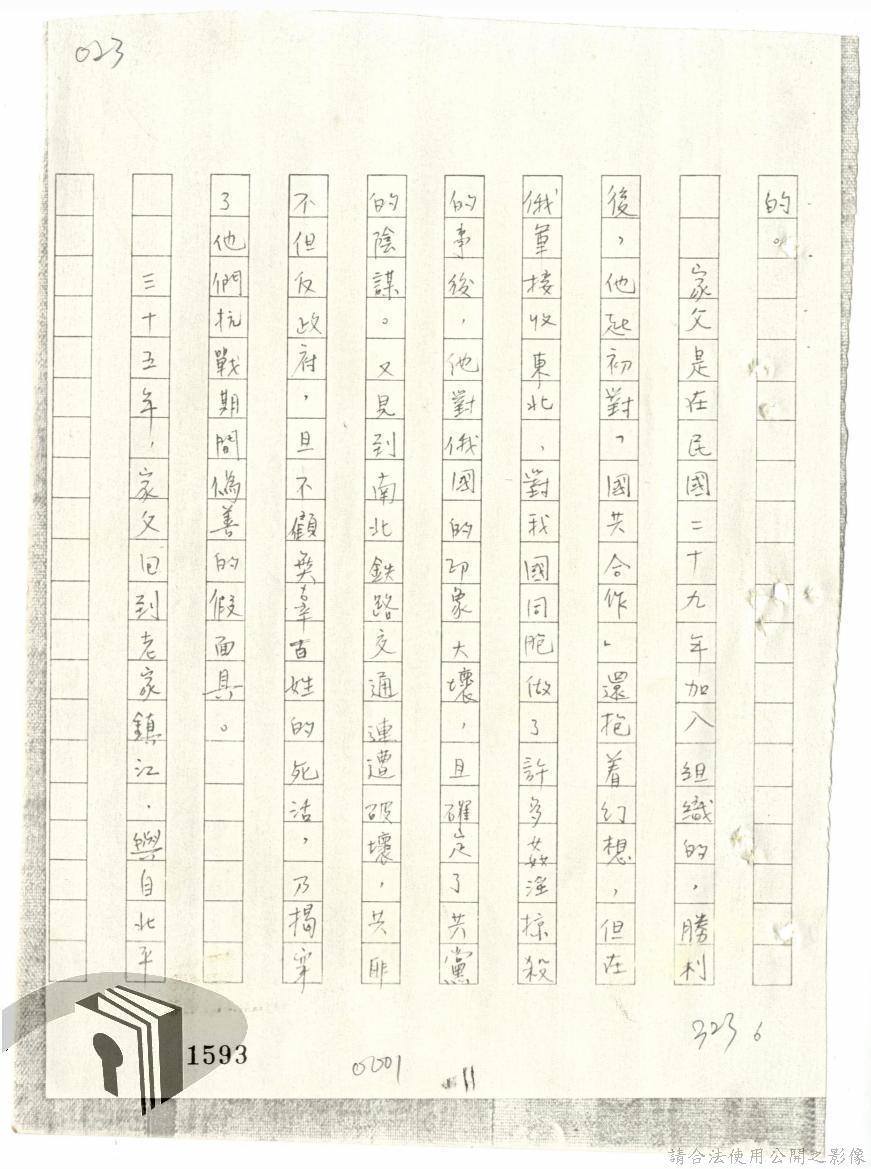 023
的。
家父是在民國二十九年加入組織的，勝利
後，他起初對「國共合作」還抱着幻想，但在
俄軍接收東北，對我國同胞做了許多姦淫掠殺
的事後，他對俄國的印象大壞，且確定了共黨
的陰謀。又見到南北鉄路交通連遭破壞，共匪
不但反政府，且不顧無辜百姓的死活，乃揭穿
了他們抗戰期間偽善的假面具。
三十五年，家父回到老家鎮江，與自北平
323 6
1593
0001
11
請合法使用公開之影像